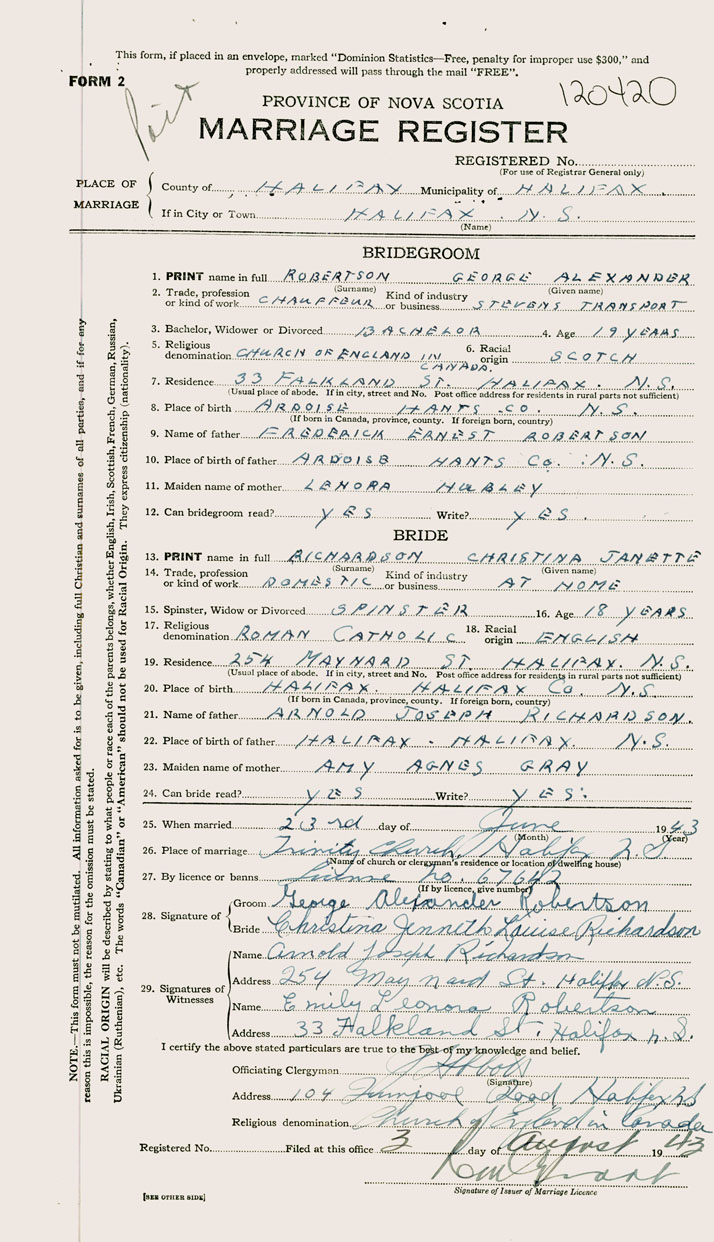 This form, if placed in an envelope, marked "Dominion Statistics—Free, penalty for improper use $300," and
properly addressed will pass through the mail "FREE".
FORM 2
120420
PROVINCE OF NOVA SCOTIA
MARRIAGE REGISTER
REGISTERED No.
(For use of Registrar General only)
PLACE OF MARRIAGE
County of HALIFAX Municipality of HALIFAX
If in City or Town HALIFAX . N.S.
(Name)
BRIDEGROOM
1. PRINT name in full ROBERTSON GEORGE ALEXANDER
(Surname) (Given name)
2. Trade, profession or kind of work CHAUFFEUR Kind of industry or business STEVENS TRANSPORT
3. Bachelor, Widower or Divorced BACHELOR 4. Age 19 YEARS
5. Religious denomination CHURCH OF ENGLAND IN CANADA. 6. Racial origin SCOTCH
7. Residence 33 FALKLAND ST. HALIFAX. N.S.
(Usual place of abode. If in city, street and No. Post office address for residents in rural parts not sufficient)
8. Place of birth ARDOISE HANTS CO. N.S.
(If born in Canada, province, county. If foreign born, country)
9. Name of father FREDERICK ERNEST ROBERTSON
10. Place of birth of father ARDOISE HANTS Co. N.S.
11. Maiden name of mother LENORA HUBLEY
12. Can bridegroom read? YES Write? YES
BRIDE
13. PRINT name in full RICHARDSON CHRISTINA JANETTE
(Surname) (Given name)
14. Trade, profession or kind of work DOMESTIC Kind of industry or business AT HOME
15. Spinster, Widow or Divorced SPINSTER 16. Age 18 YEARS
17. Religious denomination ROMAN CATHOLIC 18. Racial origin ENGLISH
19. Residence 254 MAYNARD ST HALIFAX. N.S.
(Usual place of abode. If in city, street and No. Post office address for residents in rural parts not sufficient)
20. Place of birth HALIFAX. HALIFAX Co. N.S
(If born in Canada, province, county. If foreign born, country)
21. Name of father ARNOLD JOSEPH RICHARDSON.
22. Place of birth of father HALIFAX - HALIFAX. N.S
23. Maiden name of mother AMY AGNES GRAY
24. Can bride read? YES Write? YES.
25. When married 23rd day of June 1943
(Month) (Year)
26. Place of marriage Trinity Church, Halifax N.S
(Name of church or clergyman's residence or location of dwelling house)
27. By licence or banns License No. 67642
(If by licence, give number)
28. Signature of
Groom George Alexander Robertson
Bride Christina Jenneth Louise Richardson
29. Signatures of Witnesses
Name Arnold Joseph Richardson
Address 254 Maynard St. Halifax N.S.
Name Emily Leonora Robertson
Address 33 Falkland St. Halifax N.S.
I certify the above stated particulars are true to the best of my knowledge and belief.
Officiating Clergyman
(Signature)
Address 104 Road Halifax NS
Religious denomination Church of England in Canada
Registered No. Filed at this office 3 day of August 1943
Signature of Issuer of Marriage Licence
[SEE OTHER SIDE]
NOTE.—This form must not be mutilated. All information asked for is to be given, including full Christian and surnames of all parties, and if for any
reason this is impossible, the reason for the omission must be stated.
RACIAL ORIGIN will be described by stating to what people or race each of the parents belongs, whether English, Irish, Scottish, French, German, Russian,
Ukrainian (Ruthenian), etc. The words "Canadian" or "American" should not be used for Racial Origin. They express citizenship (nationality).